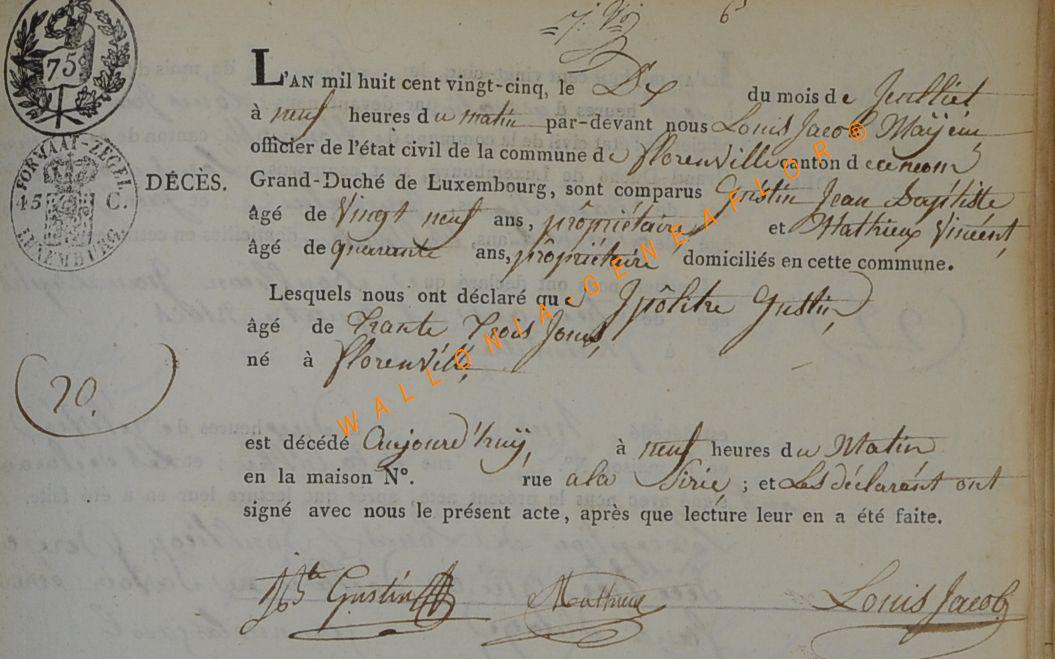 6
75
FORMAAT-ZEGEL
45 C.
LUXEMBURG
DÉCÈS.
L'AN mil huit cent vingt-cinq, le Dix du mois de Juilliet
à neuf heures du matin par-devant nous Louis Jacob
officier de l'état civil de la commune de florenville canton d
Grand-Duché de Luxembourg, sont comparus Gustin Jean Baptiste
âgé de Vingt neuf ans, propriétaire et Mathieux Vincént,
âgé de quarante ans, propriétaire domiciliés en cette commune.
Lesquels nous ont déclaré que Ipolitre Gustin,
âgé de Trante Trois Jours,
né à florenville,
20.
est décédé aujourd'huÿ, à neuf heures du Matin
en la maison N°. rue a la ; et Les déclarant ont
signé avec nous le présent acte, après que lecture leur en a été faite.
Gustin Mathieux Louis Jacob
WALLONIA-GENEAFLOR®